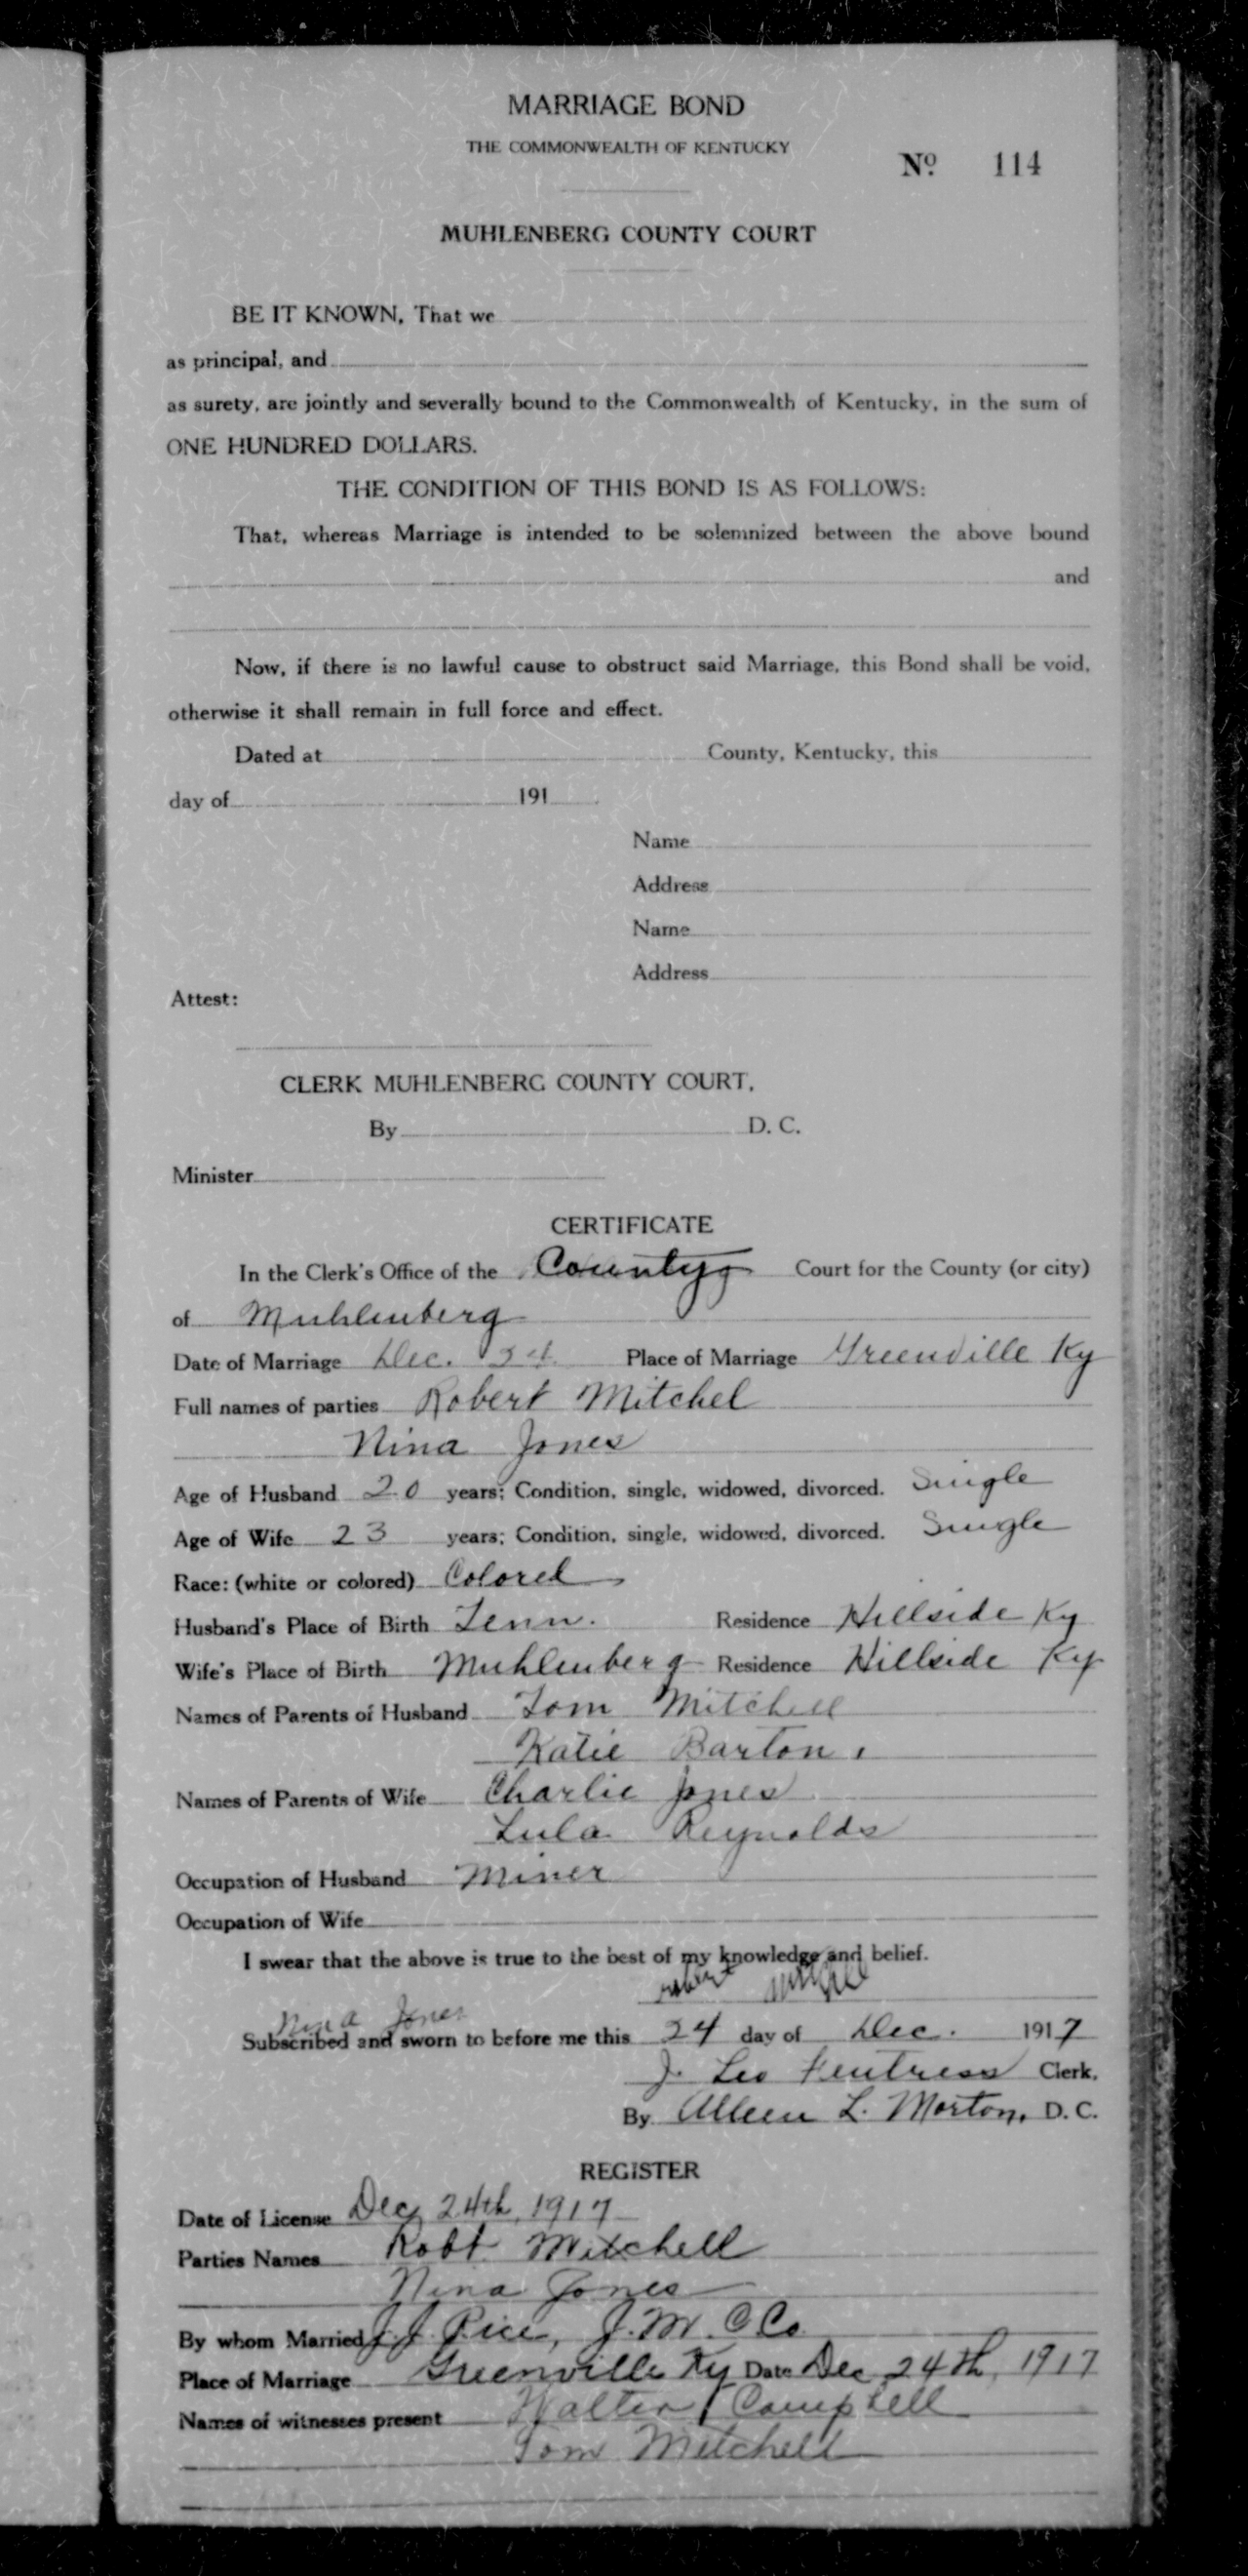 MARRIAGE BOND
THE COMMONWEALTH OF KENTUCKY
Nº 114
MUHLENBERG COUNTY COURT
BE IT KNOWN, That we
as principal, and
as surety, are jointly and severally bound to the Commonwealth of Kentucky, in the sum of
ONE HUNDRED DOLLARS.
THE CONDITION OF THIS BOND IS AS FOLLOWS:
That, whereas Marriage is intended to be solemnized between the above bound
and
Now, if there is no lawful cause to obstruct said Marriage, this Bond shall be void,
otherwise it shall remain in full force and effect.
Dated at County, Kentucky, this
day of 191
Name
Address
Name
Address
Attest:
CLERK MUHLENBERG COUNTY COURT,
By D. C.
Minister
CERTIFICATE
In the Clerk's Office of the County Court for the County (or city)
of Muhlenberg
Date of Marriage Dec. 24 Place of Marriage Greenville Ky
Full names of parties Robert Mitchel
Nina Jones
Age of Husband 20 years; Condition, single, widowed, divorced. Single
Age of Wife 23 years; Condition, single, widowed, divorced. Single
Race: (white or colored) Colored
Husband's Place of Birth Tenn. Residence Hillside Ky
Wife's Place of Birth Muhlenberg Residence Hillside Ky
Names of Parents of Husband Tom Mitchell
Katie Barton.
Names of Parents of Wife Charlie Jones
Lula Reynolds
Occupation of Husband Miner
Occupation of Wife
I swear that the above is true to the best of my knowledge and belief.
robert
Nina Jones
Subscribed and sworn to before me this 24 day of Dec. 1917
J. Leo Fentress Clerk.
By Alleen L. Morton, D. C.
REGISTER
Date of License Dec 24th, 1917
Parties Names Robt Mitchell
Nina Jones
By whom Married J. J. Rice, J. M. C Co
Place of Marriage Greenville Ky Date Dec 24th, 1917
Names of witnesses present Walter Campbell
Tom Mitchell